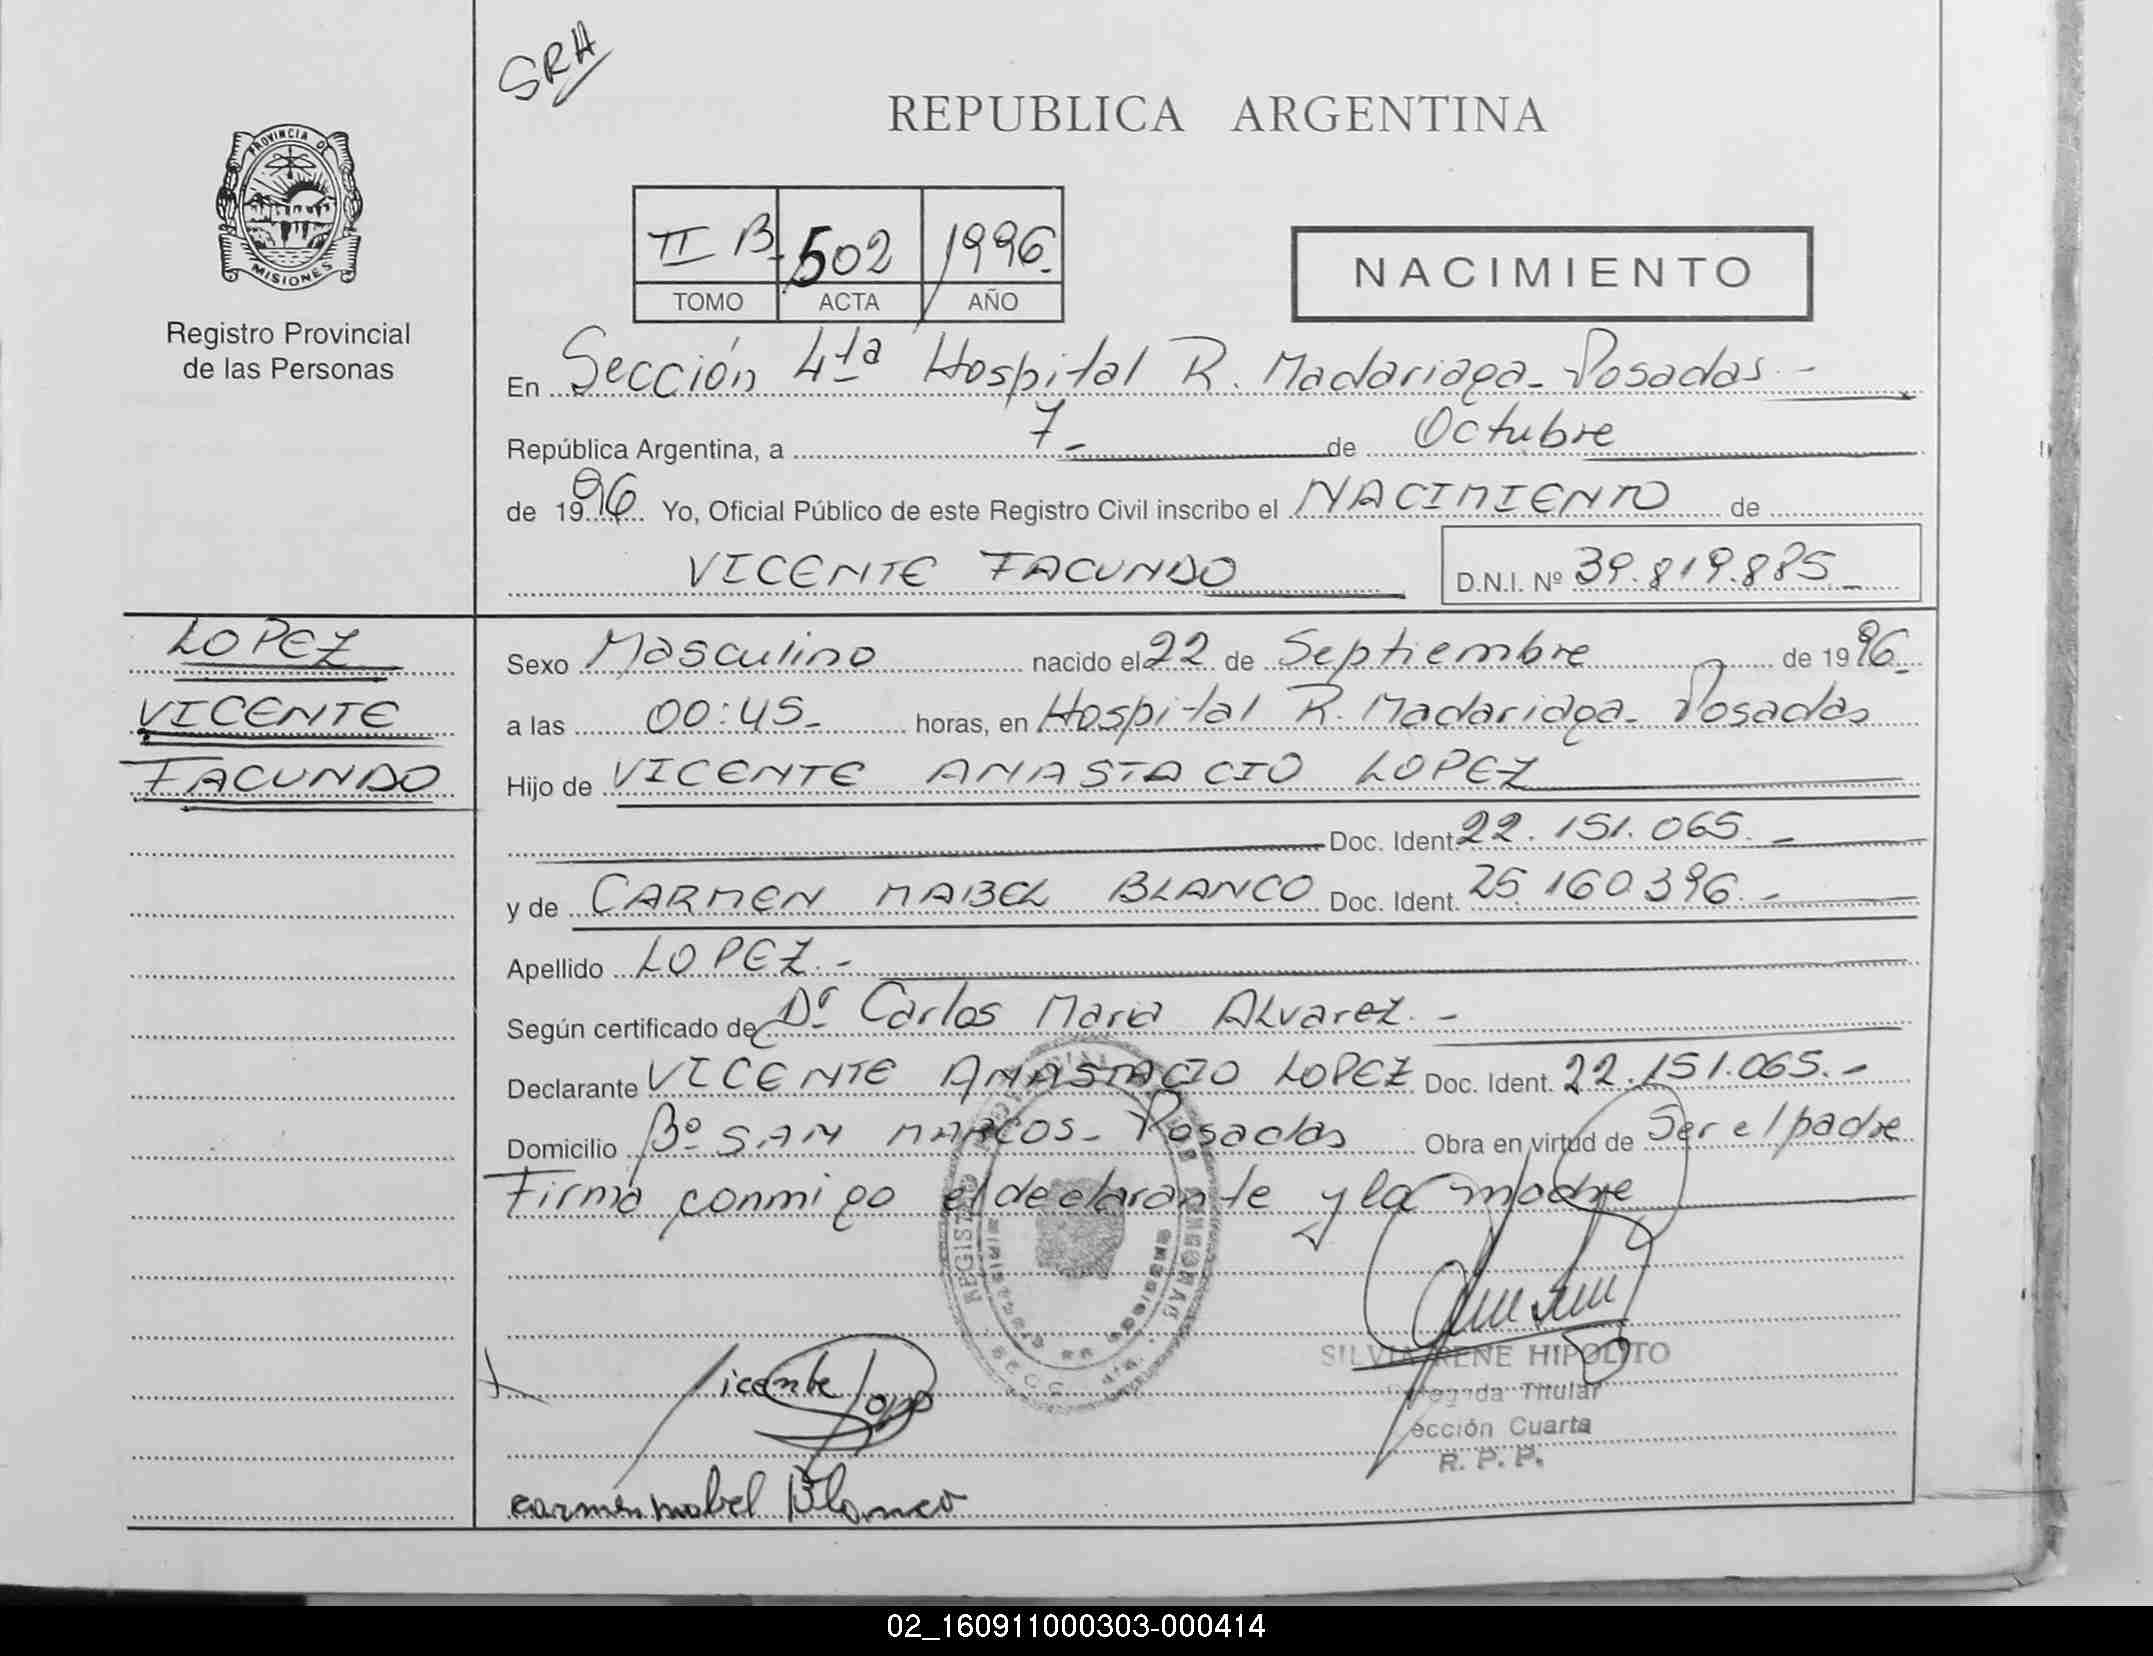 SRH
REPUBLICA ARGENTINA
PROVINCIA DE
MISIONES
Registro Provincial
de las Personas
II B. 502 1996.
TOMO ACTA AÑO
NACIMIENTO
En Sección 4ta Hospital R. Madariaga - Posadas. -
República Argentina, a 7 - de Octubre
de 1996 Yo, Oficial Público de este Registro Civil inscribo el NACIMIENTO de
VICENTE FACUNDO D.N.I. Nº 39.819.885 -
LOPEZ
VICENTE
FACUNDO
Sexo Masculino nacido el 22 de Septiembre de 1996.
a las 00:45 - horas, en Hospital R. Madariaga - Posadas
Hijo de VICENTE ANASTACIO LOPEZ
Doc. Ident. 22.151.065. -
y de CARMEN MABEL BLANCO Doc. Ident. 25.160.396. -
Apellido LOPEZ. -
Según certificado de Dr Carlos Maria Alvarez. -
Declarante VICENTE ANASTACIO LOPEZ Doc. Ident. 22.151.065. -
Domicilio Bº SAN MARCOS - Posadas Obra en virtud de Ser el padre
Firma conmigo el declarante y la madre
SILVIA RENE HIPOLITO
Titular
Sección Cuarta
R. P. P.
Vicente Lopez
carmen mabel Blanco
02_160911000303-000414